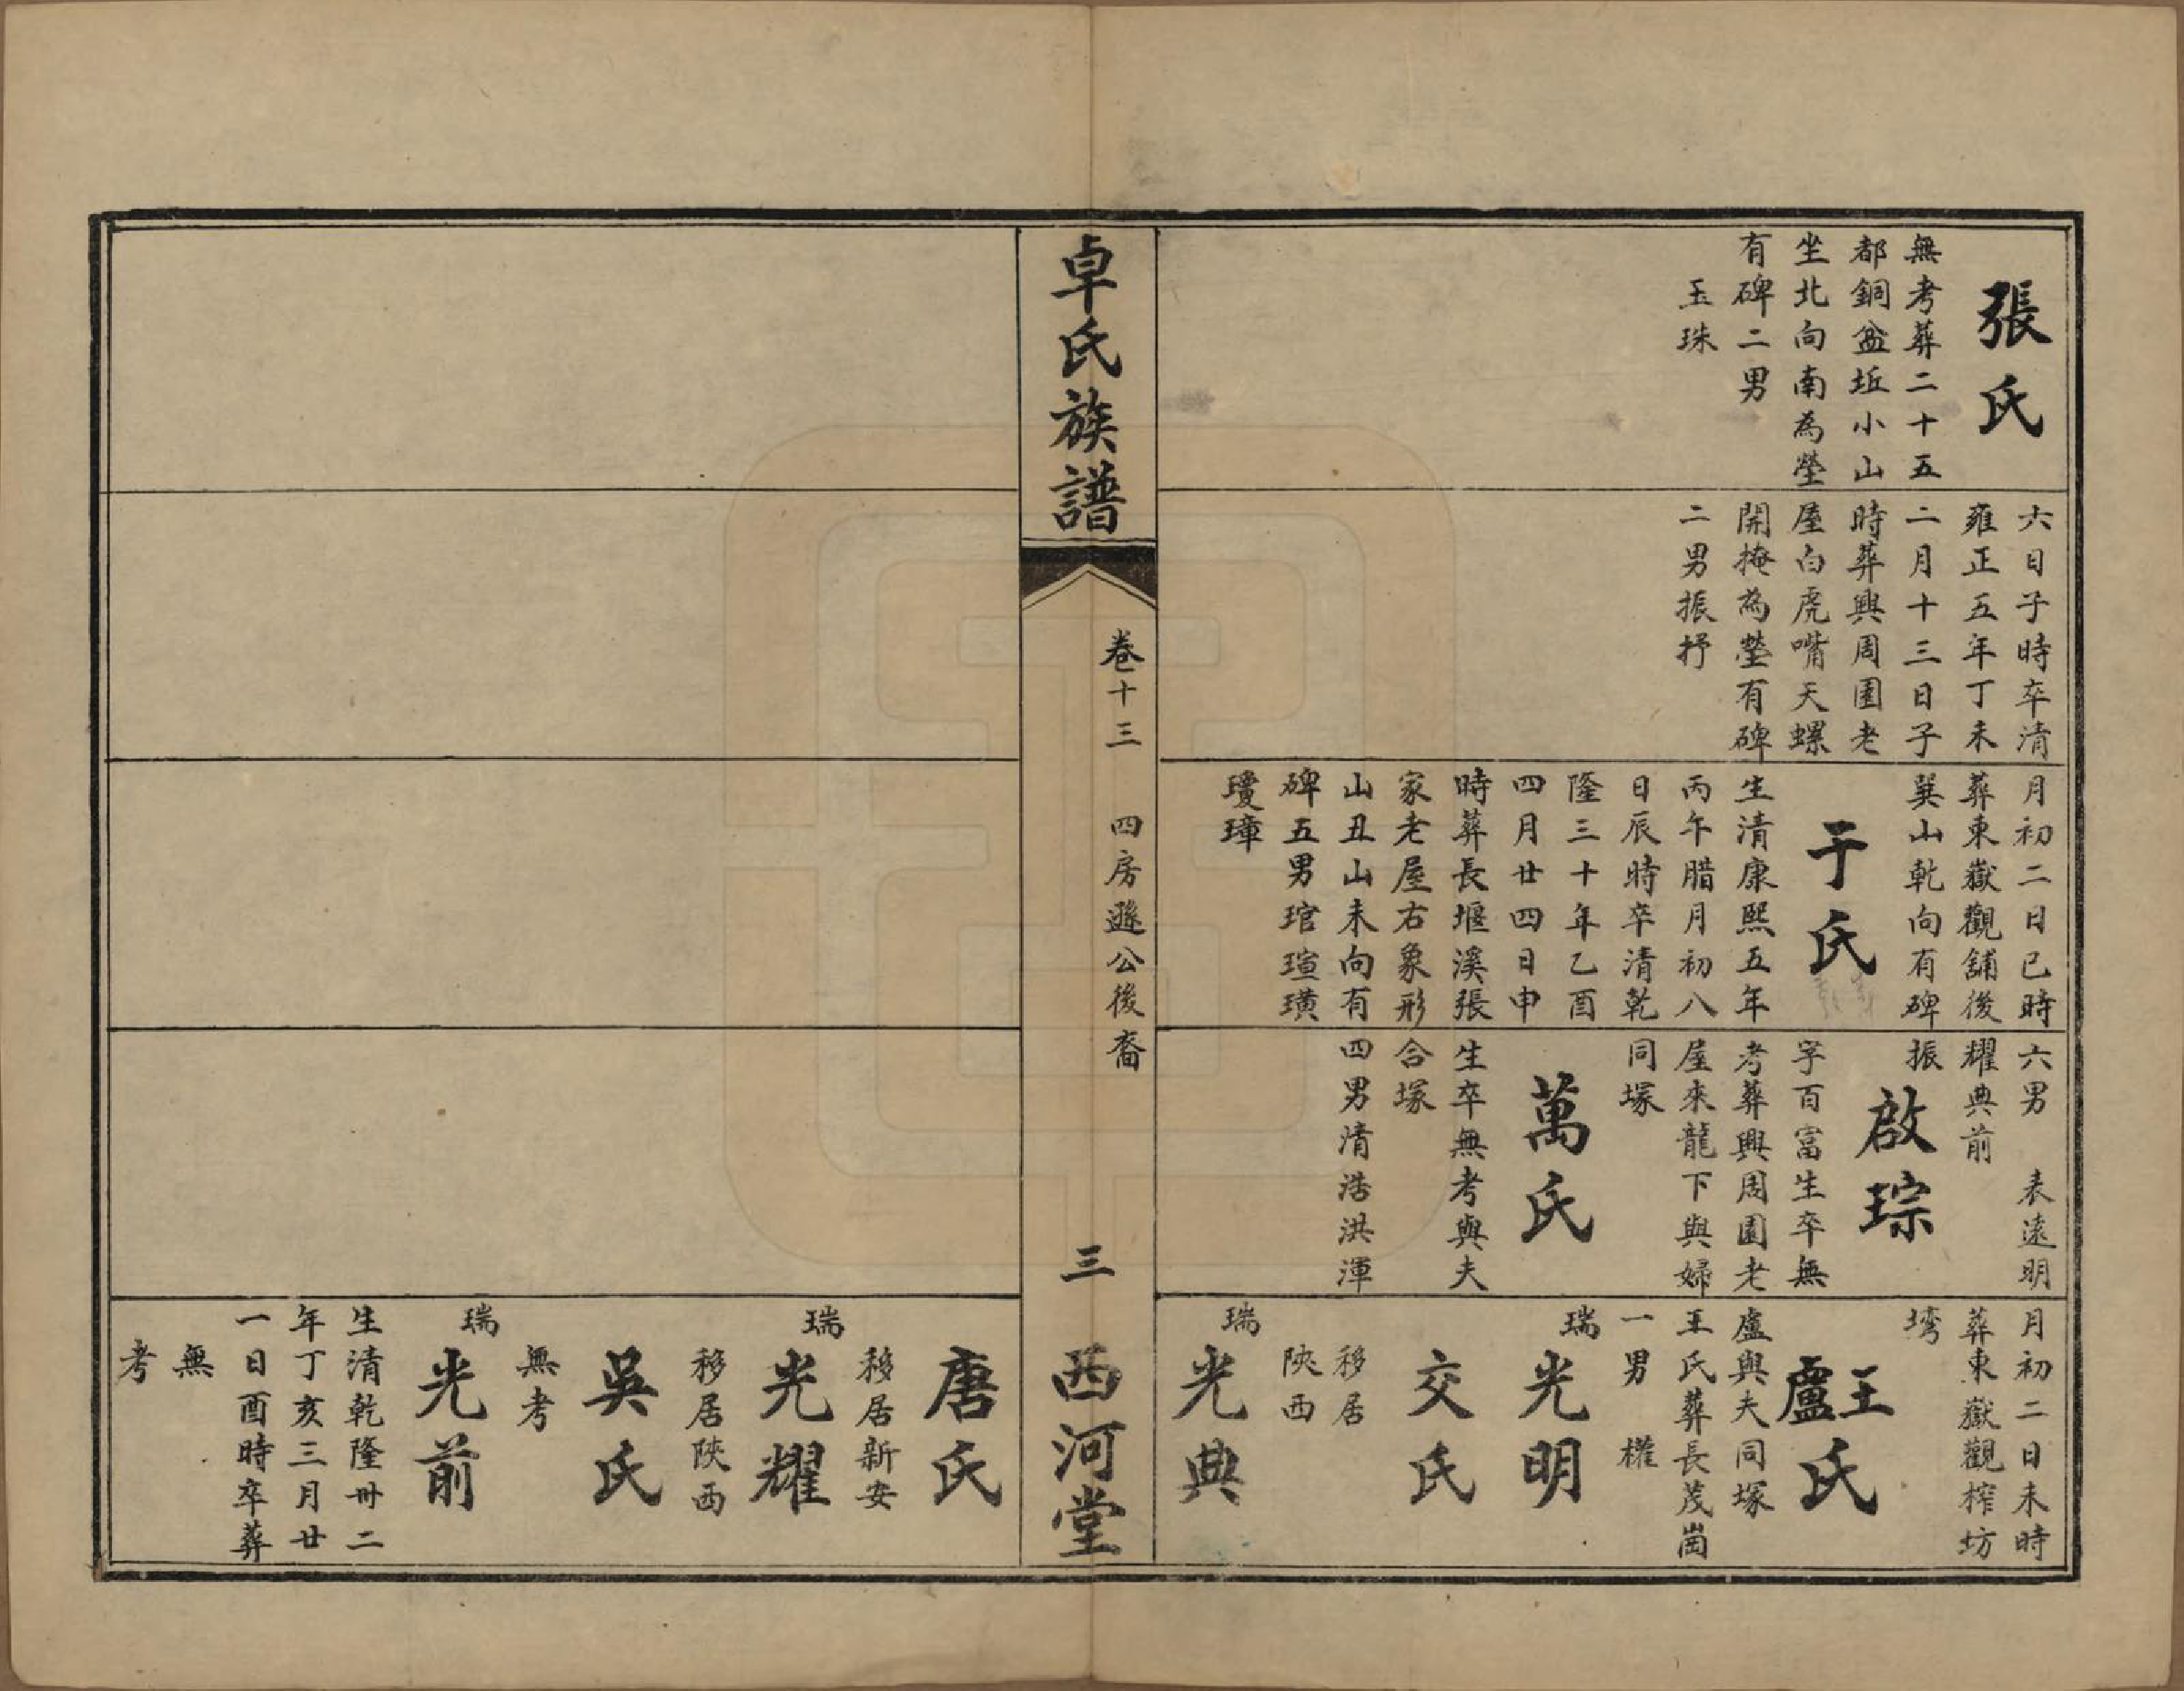 張氏
無考葬二十五
都銅盆坵小山
坐北向南為塋
有碑二男
玉珠
六日子時卒清
雍正五年丁未
二月十三日子
時葬興周園老
屋白虎嘴天螺
開掩為塋有碑
二男振抒
月初二日巳時
葬東嶽觀舖後
巽山乾向有碑
于氏
生清康熙五年
丙午腊月初八
日辰時卒清乾
隆三十年乙酉
四月廿四日申
時葬長堰溪張
家老屋右象形
山丑山未向有
碑五男琯瑄璜
瓊璋
六男 表遠明
耀典前
振
啟琮
字百富生卒無
考葬興周園老
屋來龍下與婦
同塚
萬氏
生卒無考與夫
合塚
四男清浩洪渾
月初二日未時
葬東嶽觀榨坊
塆
王
盧
氏
盧與夫同塚
王氏葬長茂崗
一男 權
瑞
光明
交氏
移居
陝西
瑞
光典
卓氏族譜
卷十三 四房遜公後裔
三
西河堂
唐氏
移居新安
瑞
光耀
移居陝西
吳氏
無考
瑞
光前
生清乾隆卅二
年丁亥三月廿
一日酉時卒葬
無
考